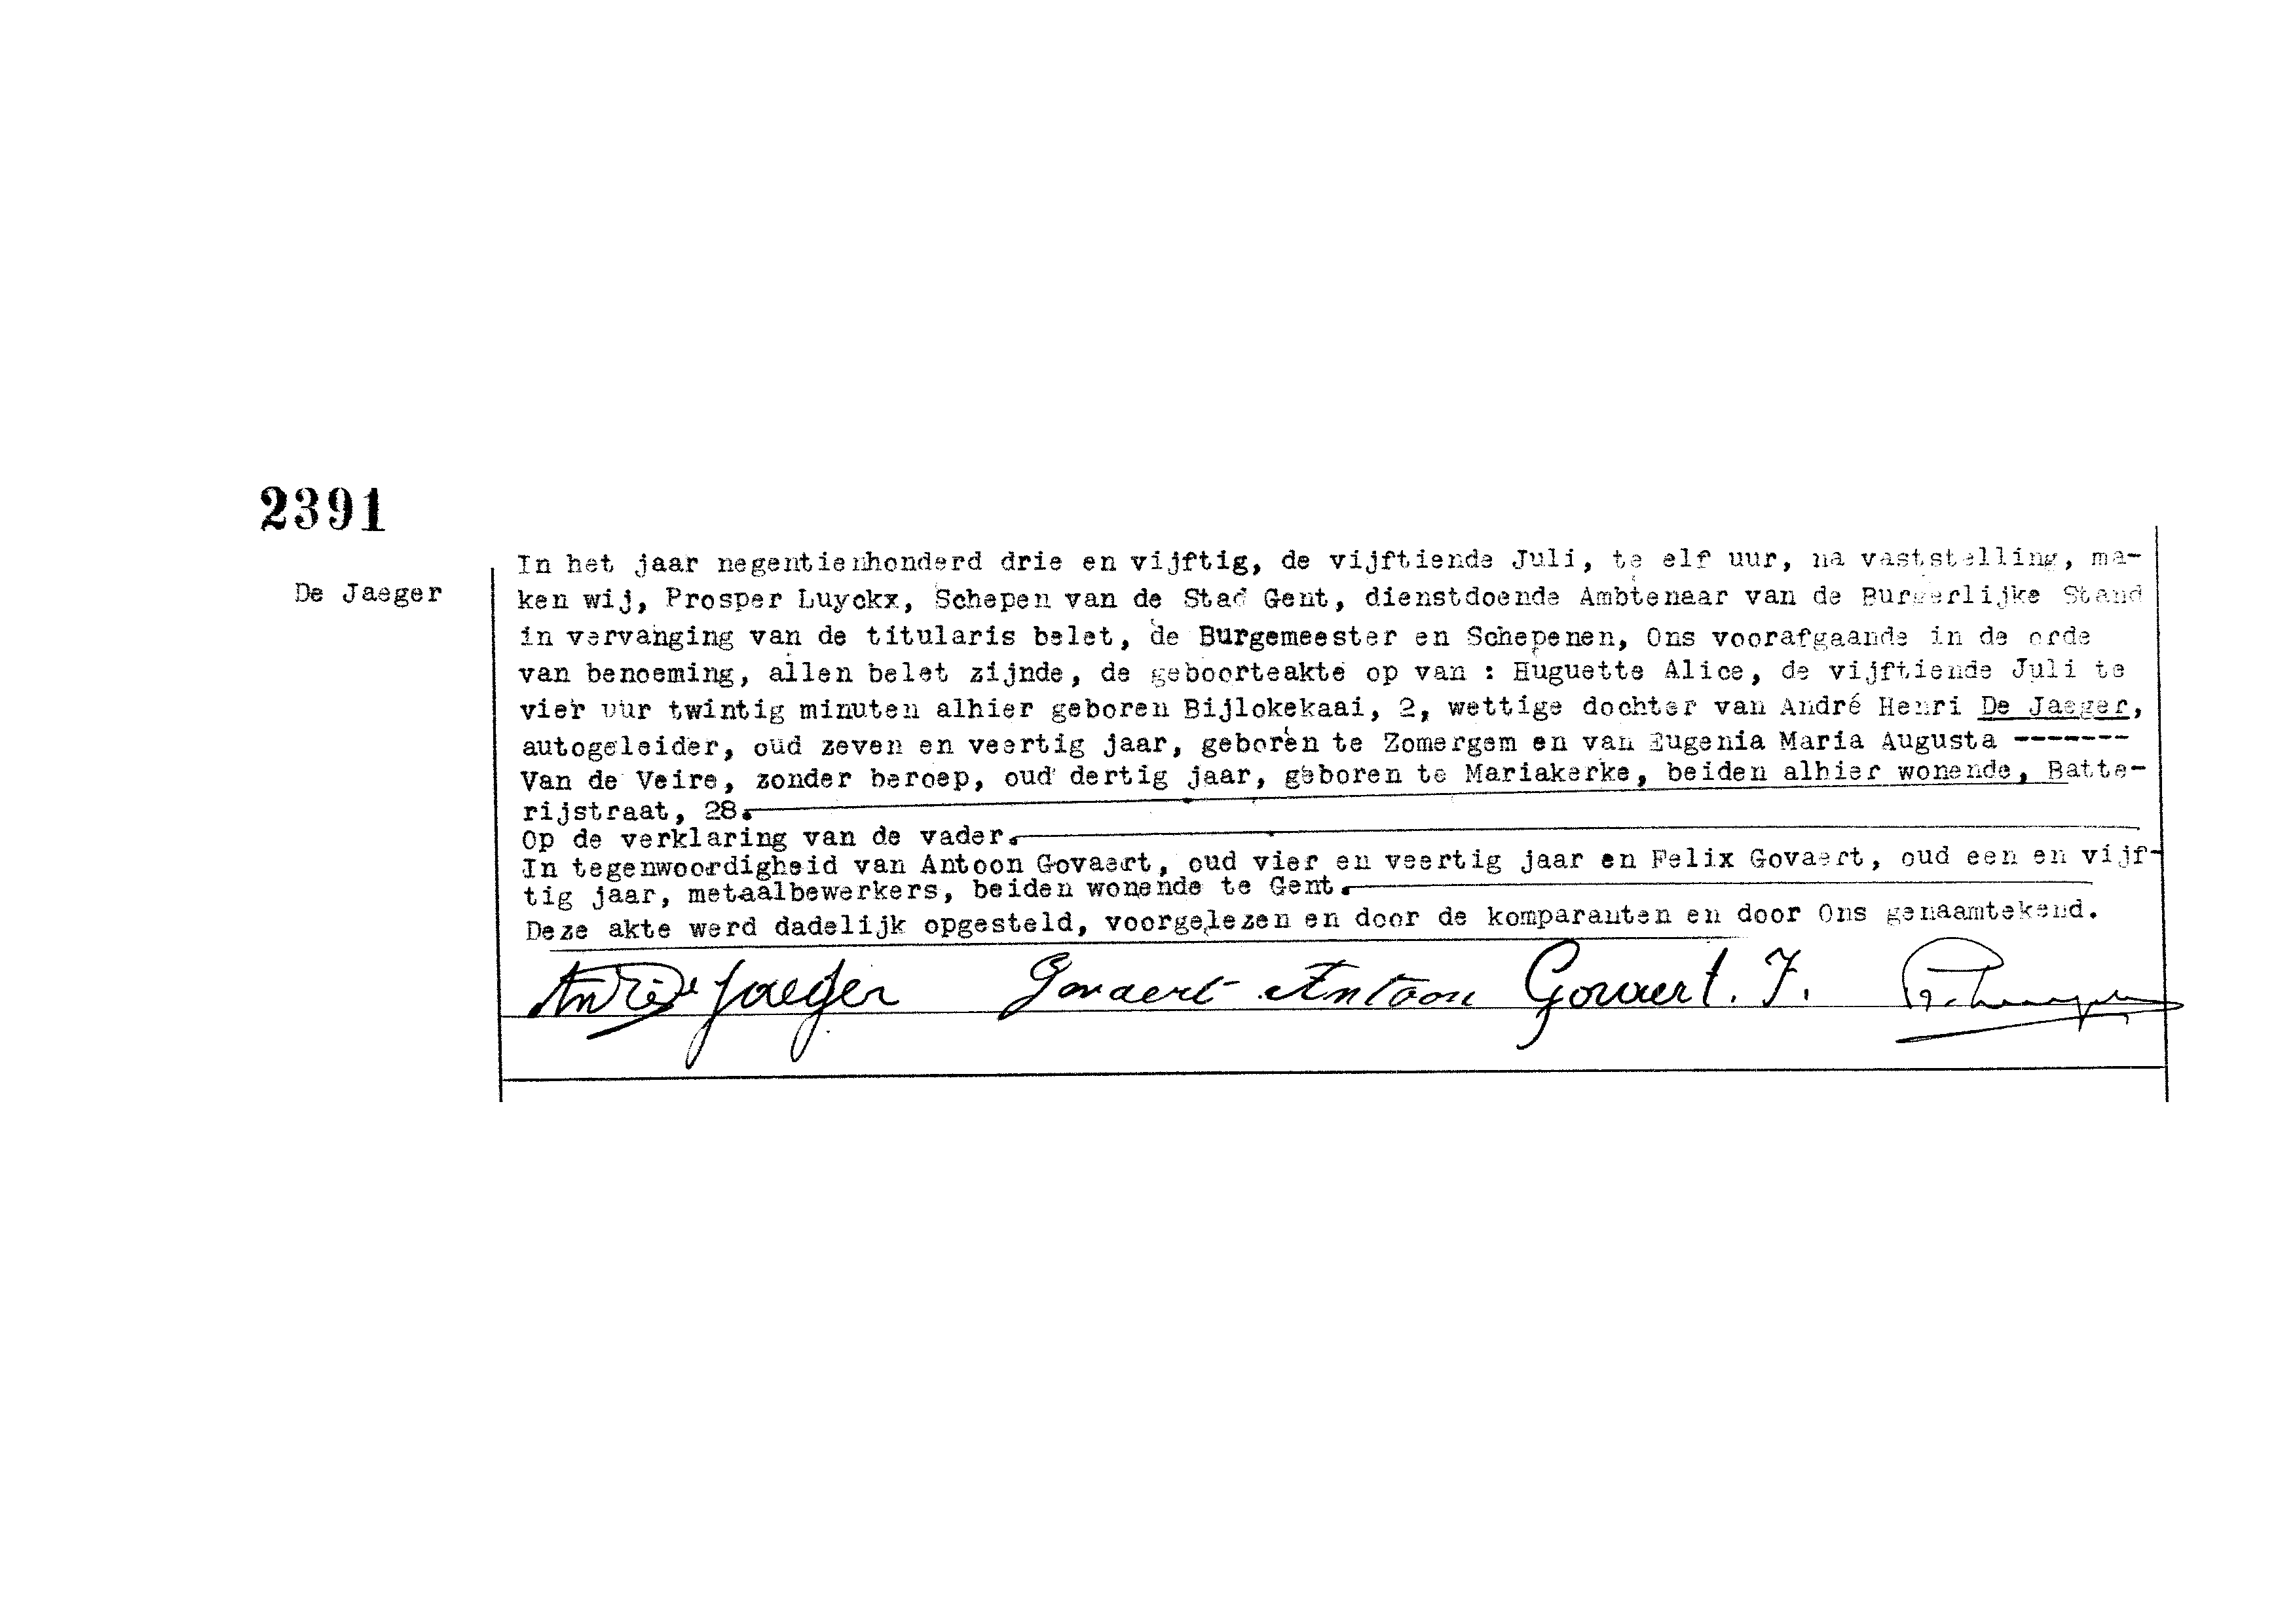 2391
De Jaeger
In het jaar negentienhonderd drie en vijftig, de vijftiende Juli, te elf uur, na vaststelling, ma-
ken wij, Prosper Luyckx, Schepen van de Stad Gent, dienstdoende Ambtenaar van de Burgerlijke Stand
in vervanging van de titularis belet, de Burgemeester en Schepenen, Ons voorafgaande in de orde
van benoeming, allen belet zijnde, de geboorteakte op van : Huguette Alice, de vijftiende Juli te
vier uur twintig minuten alhier geboren Bijlokekaai, 2, wettige dochter van André Henri De Jaeger,
autogeleider, oud zeven en veertig jaar, geboren te Zomergem en van Eugenia Maria Augusta -------
Van de Veire, zonder beroep, oud dertig jaar, geboren te Mariakerke, beiden alhier wonende, Batte-
rijstraat, 28.
Op de verklaring van de vader.
In tegenwoordigheid van Antoon Govaert, oud vier en veertig jaar en Felix Govaert, oud een en vijf-
tig jaar, metaalbewerkers, beiden wonende te Gent.
Deze akte werd dadelijk opgesteld, voorgelezen en door de komparanten en door Ons genaamtekend.
André De Jaeger Govaert Antoon Govaert. F.